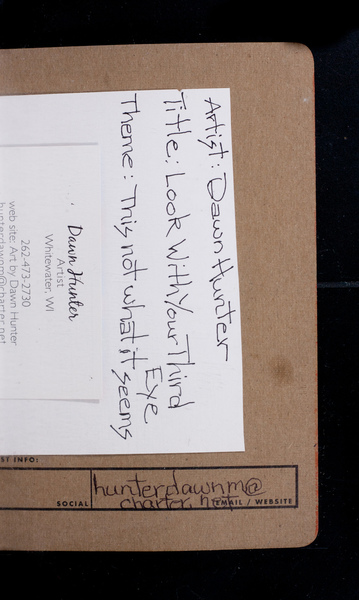 Artist: Dawn Hunter
Title: Look With Your Third
Eye
Theme: This not what it seems
Dawn Hunter
Artist
Whitewater, WI
262-473-2730
web site: Art by Dawn Hunter
hunterdawnm@charter.net
ST INFO:
SOCIAL
hunterdawnm@
charter.net
EMAIL / WEBSITE